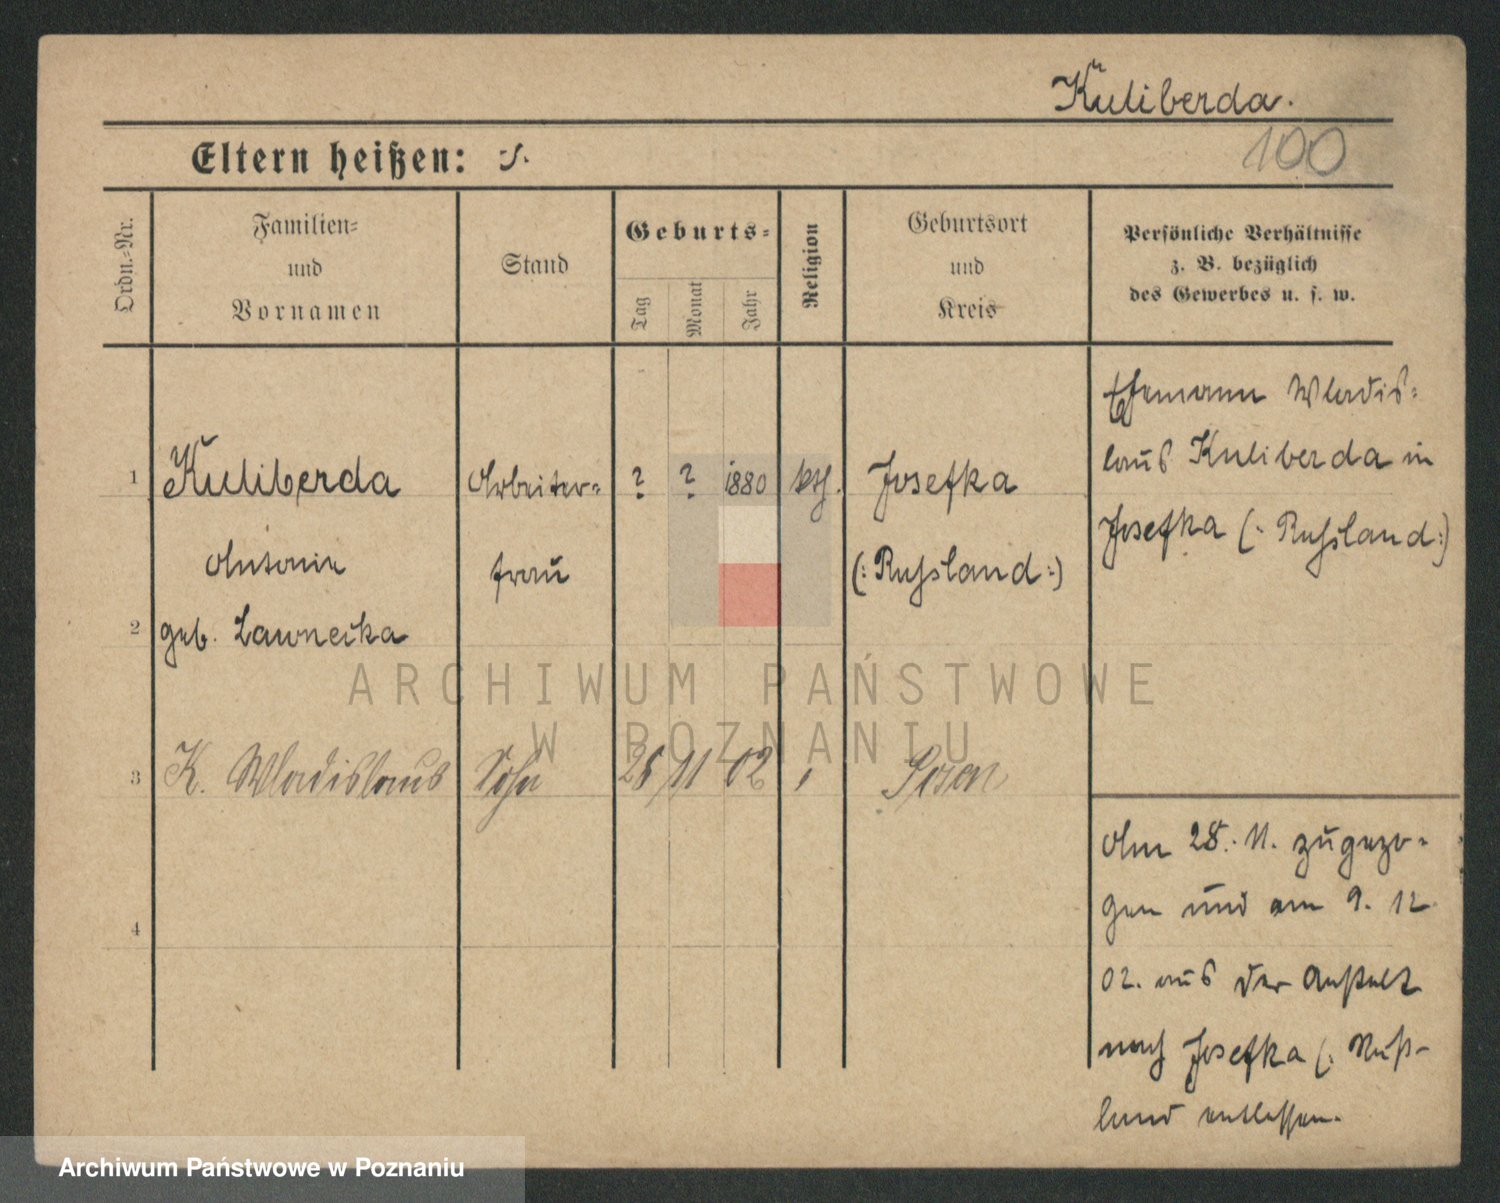 Kuliberda.
100
Eltern heißen:
Ordn.-Nr.
Familien-
und
Vornamen
Stand
Geburts-
Tag
Monat
Jahr
Religion
Geburtsort
und
Kreis
Persönliche Verhältnisse
z. B. bezüglich
des Gewerbes u. s. w.
1 Kuliberda Arbeiter- ? ? 1880 kth. Josefka
Antonie frau (: Russland :)
2 geb. Lawnecka
Ehemann Wladis-
laus Kuliberda in
Josefka (: Russland :)
3 K. Wladislaus Sohn 28 11 02 Posen
4
Am 28. 11. zugezo-
gen und am 9. 12.
02. aus der Anstalt
nach Josefka (: Ruß-
land entlassen.
ARCHIWUM PAŃSTWOWE
W POZNANIU
Archiwum Państwowe w Poznaniu